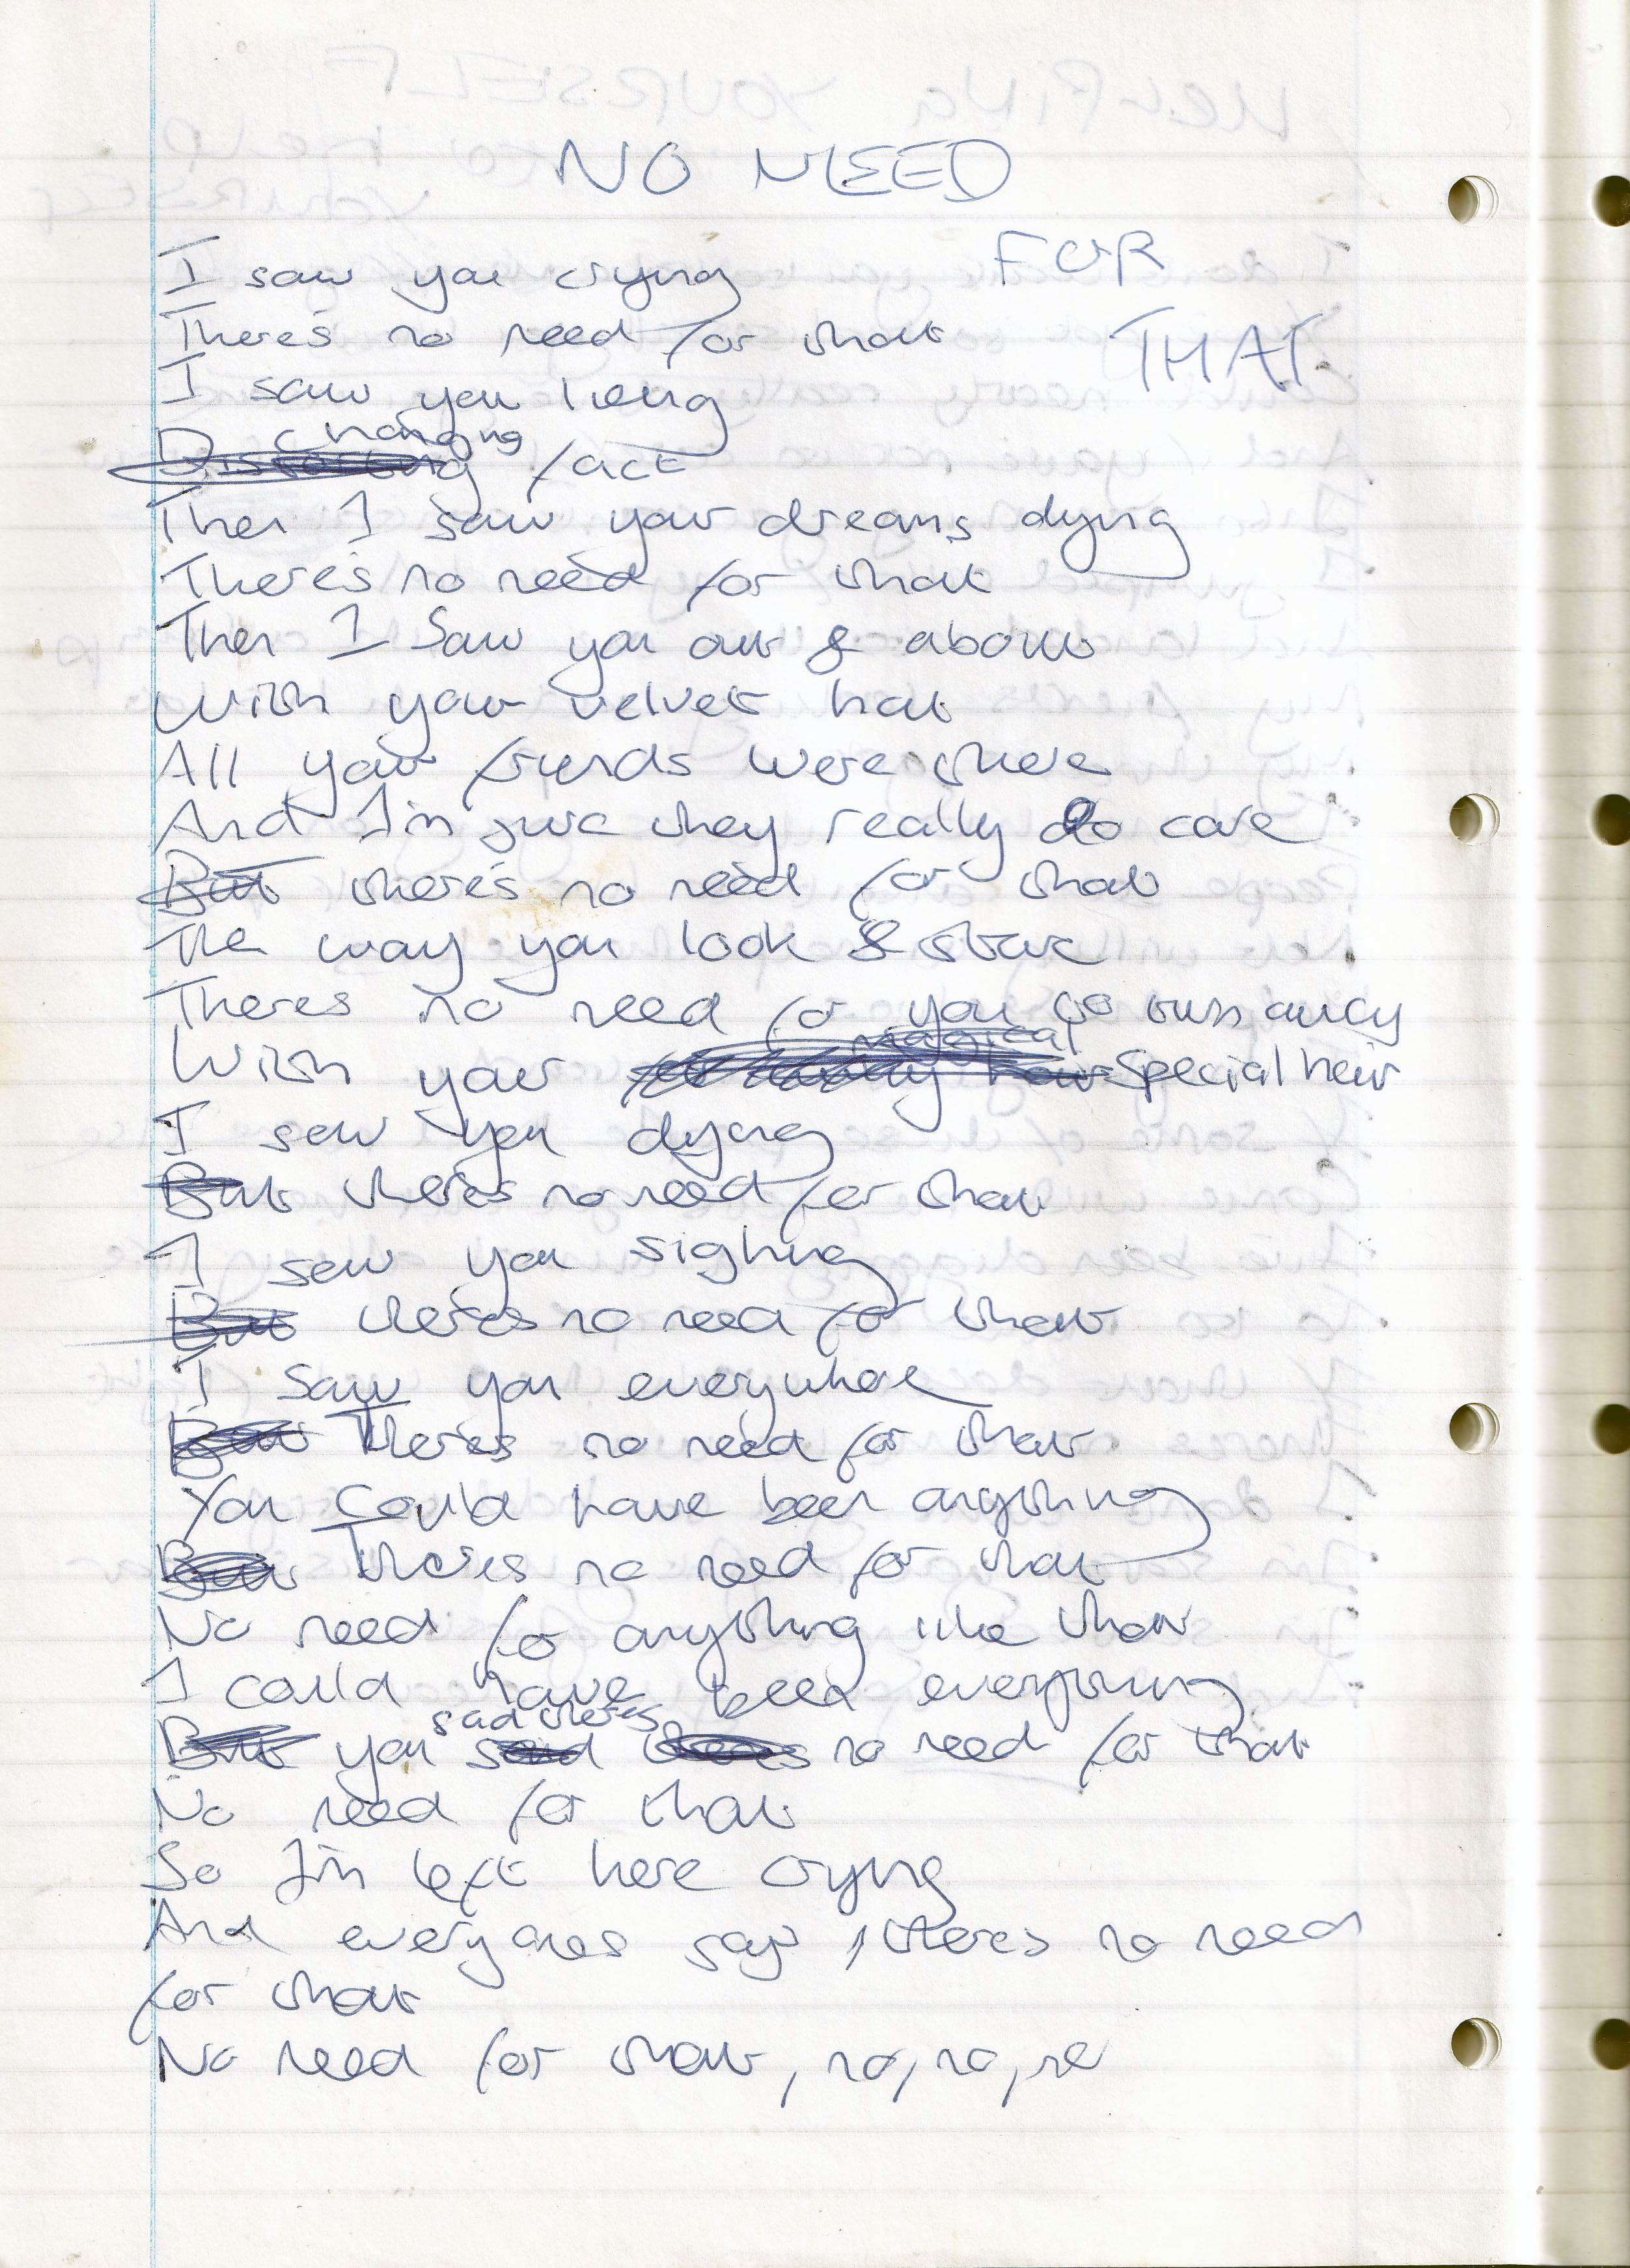 NO NEED
FOR
THAT
I saw you crying
There's no need for that
I saw you lieing
changing
Distorting fact
Then I saw your dreams dying
There's no need for that
Then I saw you out & about
With your velvet hat
All your friends were there
And I'm sure they really do care
But there's no need for that
The way you look & stare
Theres no need for you to turn away
magical
With your special hair
I saw you dying
But there's no need for that
I saw you sighing
But there's no need for that
I saw you everywhere
But There's no need for that
You could have been anything
But There's no need for that
No need for anything like that
I could have been everything
said theres
But you said theres no need for that
No need for that
So I'm left here crying
And everyones says, theres no need
for that
No need for that, no, no, no